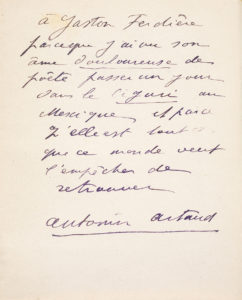 à Gaston Ferdière
parce que j'ai vu son
âme douloureuse de
poète passer un jour
dans le Ciguri au
Mexique et parce
qu'elle est tout
que ce monde veut
l'empêcher de
retrouver
Antonin Artaud